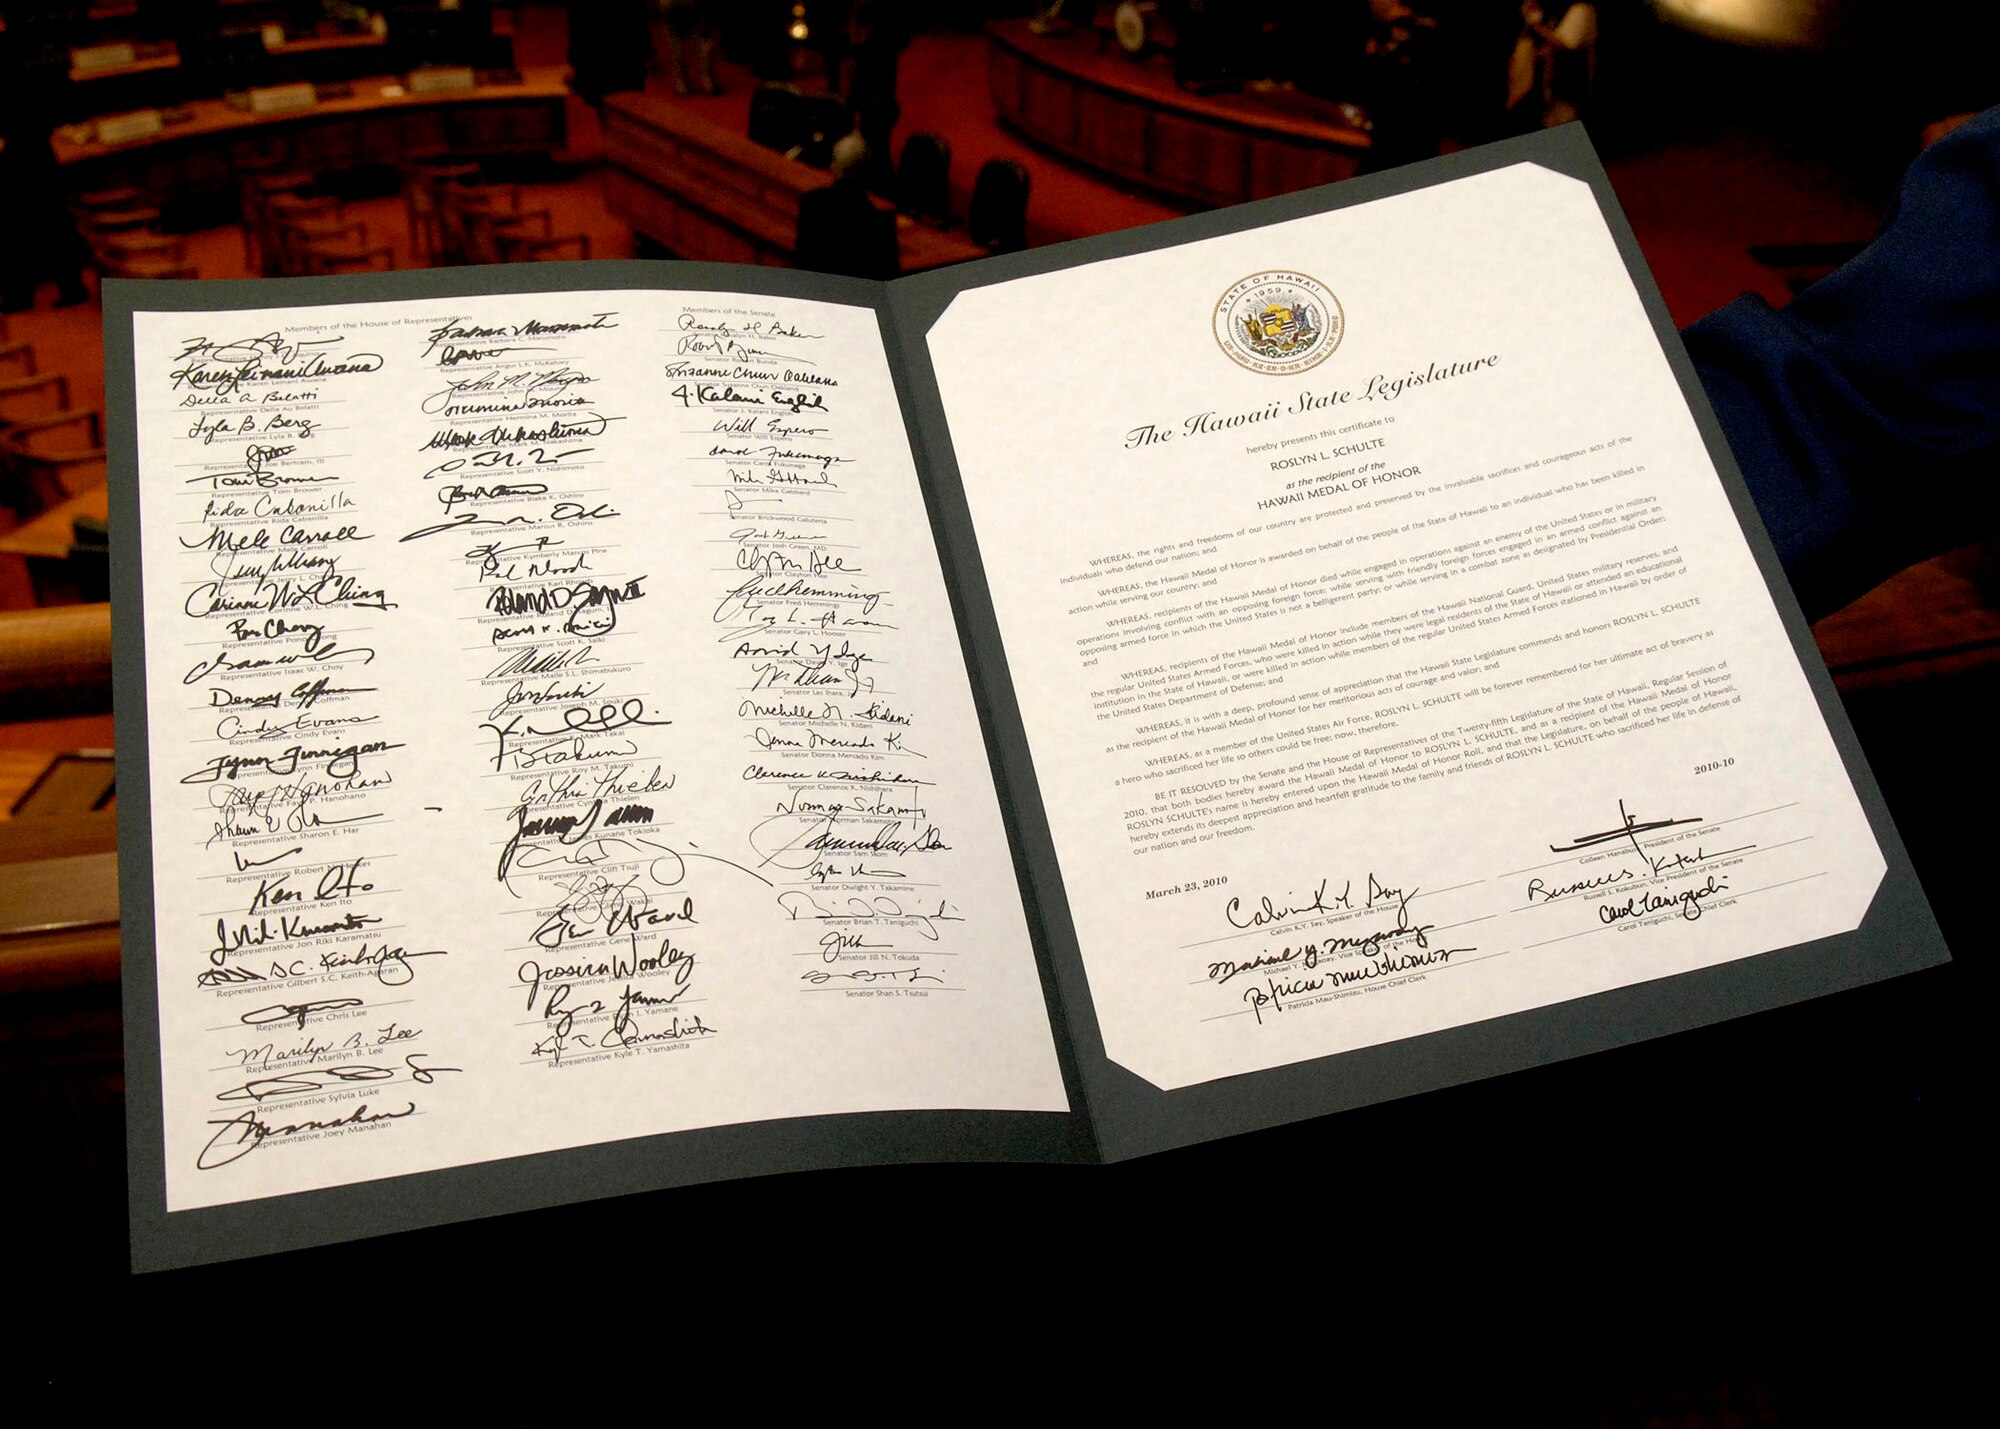 Members of the House of Representatives
Karen Leinani Awana
Representative Karen Leinani Awana
Della A Belatti
Representative Della Au Belatti
Lyla B. Berg
Representative Lyla B.
Representative Joe Bertram, III
Tom Brower
Representative Tom Brower
Rida Cabanilla
Representative Rida Cabanilla
Mele Carroll
Representative Mele Carroll
Representative Jerry L.
Corinne W.L. Ching
Representative Corinne W.L. Ching
Representative Isaac W. Choy
Denny Coffman
Cindy Evans
Representative Cindy Evans
Lynn Finnegan
Faye P. Hanohano
Representative Sharon E. Har
Representative Robert
Ken Ito
Representative Ken Ito
Representative Jon Riki Karamatsu
Representative Gilbert S.C. Keith-Agaran
Representative Chris Lee
Marilyn B. Lee
Representative Marilyn B. Lee
Representative Sylvia Luke
Representative Joey Manahan
Representative Barbara C. Marumoto
Representative Angus L.K. McKelvey
Representative John M.
Representative Hermina M. Morita
Representative Mark M. Nakashima
Representative Scott Y. Nishimoto
Representative Blake K. Oshiro
Representative Marcus R. Oshiro
Representative Kymberly Marcos Pine
Representative Karl Rhoads
Roland D. Sagum III
Representative Scott K. Saiki
Representative Maile S.L. Shimabukuro
Representative Joseph M. Souki
Representative K. Mark Takai
Representative Roy M. Takumi
Cynthia Thielen
Representative Cynthia Thielen
James Kunane Tokioka
Representative Clift Tsuji
Gene Ward
Representative Gene Ward
Jessica Wooley
Representative Jessica Wooley
Representative Kyle T. Yamashita
Members of the Senate
Rosalyn H Baker
Senator Robert Bunda
Suzanne Chun Oakland
Senator Suzanne Chun Oakland
J. Kalani English
Senator J. Kalani English
Will Espero
Senator Will Espero
Carol Fukunaga
Senator Carol Fukunaga
Senator Mike Gabbard
Senator Brickwood Galuteria
Senator Josh Green, MD
Clayton Hee
Senator Clayton Hee
Fred Hemmings
Senator Fred Hemmings
Senator Gary L. Hooser
David Y Ige
Senator David Y. Ige
Senator Les Ihara, Jr.
Michelle N. Kidani
Senator Michelle N. Kidani
Donna Mercado Kim
Senator Donna Mercado Kim
Clarence K Nishihara
Senator Clarence K. Nishihara
Norman Sakamoto
Senator Norman Sakamoto
Senator Sam Slom
Senator Dwight Y. Takamine
Senator Brian T. Taniguchi
Jill
Senator Jill N. Tokuda
Senator Shan S. Tsutsui
STATE OF HAWAII
1959
The Hawaii State Legislature
hereby presents this certificate to
ROSLYN L. SCHULTE
as the recipient of the
HAWAII MEDAL OF HONOR
WHEREAS, the rights and freedoms of our country are protected and preserved by the invaluable sacrifices and courageous acts of the
individuals who defend our nation; and
WHEREAS, the Hawaii Medal of Honor is awarded on behalf of the people of the State of Hawaii to an individual who has been killed in
action while serving our country; and
WHEREAS, recipients of the Hawaii Medal of Honor died while engaged in operations against an enemy of the United States or in military
operations involving conflict with an opposing foreign force; while serving with friendly foreign forces engaged in an armed conflict against an
opposing armed force in which the United States is not a belligerent party; or while serving in a combat zone as designated by Presidential Order;
and
WHEREAS, recipients of the Hawaii Medal of Honor include members of the Hawaii National Guard, United States military reserves, and
the regular United States Armed Forces, who were killed in action while they were legal residents of the State of Hawaii or attended an educational
institution in the State of Hawaii, or were killed in action while members of the regular United States Armed Forces stationed in Hawaii by order of
the United States Department of Defense; and
WHEREAS, it is with a deep, profound sense of appreciation that the Hawaii State Legislature commends and honors ROSLYN L. SCHULTE
as the recipient of the Hawaii Medal of Honor for her meritorious acts of courage and valor; and
WHEREAS, as a member of the United States Air Force, ROSLYN L. SCHULTE will be forever remembered for her ultimate act of bravery as
a hero who sacrificed her life so others could be free; now, therefore,
BE IT RESOLVED by the Senate and the House of Representatives of the Twenty-fifth Legislature of the State of Hawaii, Regular Session of
2010, that both bodies hereby award the Hawaii Medal of Honor to ROSLYN L. SCHULTE, and as a recipient of the Hawaii Medal of Honor
ROSLYN SCHULTE's name is hereby entered upon the Hawaii Medal of Honor Roll, and that the Legislature, on behalf of the people of Hawaii,
hereby extends its deepest appreciation and heartfelt gratitude to the family and friends of ROSLYN L. SCHULTE who sacrificed her life in defense of
our nation and our freedom.
2010-10
March 23, 2010
Colleen Hanabusa, President of the Senate
Calvin K.Y. Say
Calvin K.Y. Say, Speaker of the House
Russell S. Kokubun, Vice President of the Senate
Carol Taniguchi
Carol Taniguchi, Senate Chief Clerk
Michael Y. Magaoay, Vice Speaker of the House
Patricia Mau-Shimizu, House Chief Clerk